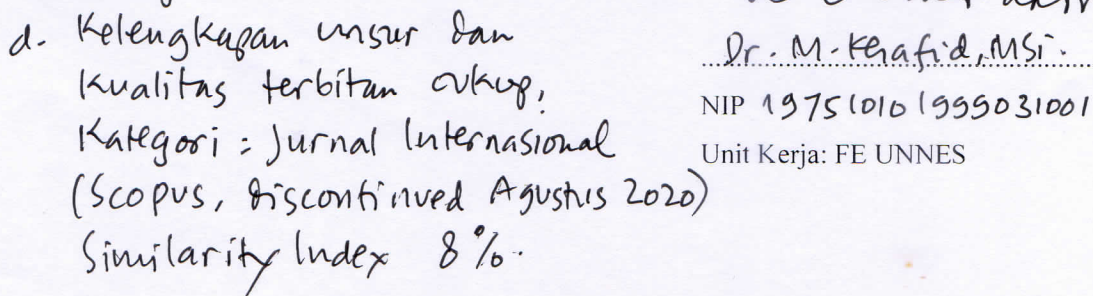 d. Kelengkapan unsur dan
kualitas terbitan cukup,
Kategori : Jurnal Internasional
(Scopus, discontinued Agustus 2020)
Similarity Index 8%.
Dr. M. Khafid, MSi.
NIP 197510101999031001
Unit Kerja: FE UNNES